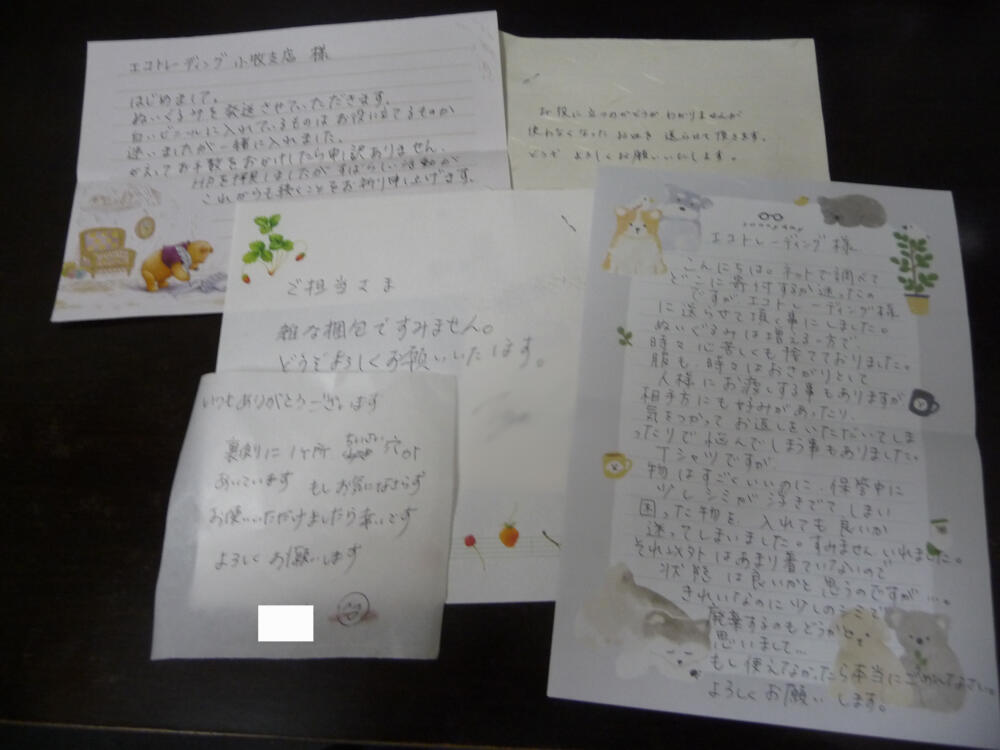 エコトレーディング小牧支店 様
はじめまして。
ぬいぐるみを発送させていただきます。
白いビニールに入れているものはお役に立てるものか
迷いましたが一緒に入れました。
かえってお手数をおかけしたら申し訳ありません。
HPを拝見しましたがすばらしい活動が
これからも続くことをお祈り申し上げます。
お役に立つのかどうかわかりませんが
使わなくなった を送らせて頂きます。
どうぞ よろしくお願いいたします。
ご担当さま
雑な梱包ですみません。
どうぞよろしくお願いいたします。
いつもありがとうございます
裏側に1ヶ所 ちいさい 穴が
あいています もしお気になさらず
お使いいただけましたら幸いです
よろしくお願いします
エコトレーディング様
こんにちは。ネットで調べて
どこに寄付するか迷ったの
ですがエコトレーディング様
に送らせて頂く事にしました。
ぬいぐるみは増える一方で
時々心苦しくも捨てておりました。
服も、時々はおさがりとして
人様にお渡しする事もありますが
相手方にも好みがあったり、
気をつかってお返しをいただいてしま
ったりで悩んでしまう事もありました。
Tシャツですが
物はすごくいいのに、保管中に
少しシミが浮きでてしまい
困った物を、入れても良いか
迷ってしまいました。すみません いれました。
それ以外はあまり着ていないので
状態は良いかと思うのですが…。
きれいなのに少しのシミで
廃棄するのもどうかと
思いまして…
もし使えなかったら本当にごめんなさい。
よろしくお願いします。